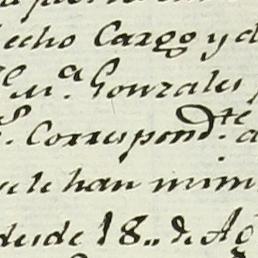 echo Cargo y d
M.ª Gonzales
Correspond.te a
le han mini
desde 18,, de Ag